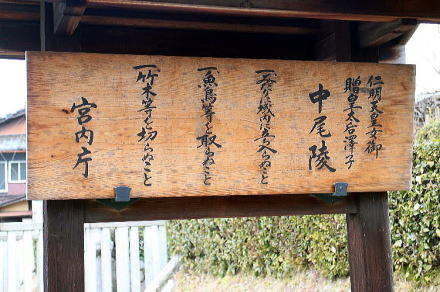 仁明天皇女御
贈皇太后澤子
中尾陵
一、みだりに域内に立入らぬこと
一、魚鳥等を取らぬこと
一、竹木等を切らぬこと
宮内庁